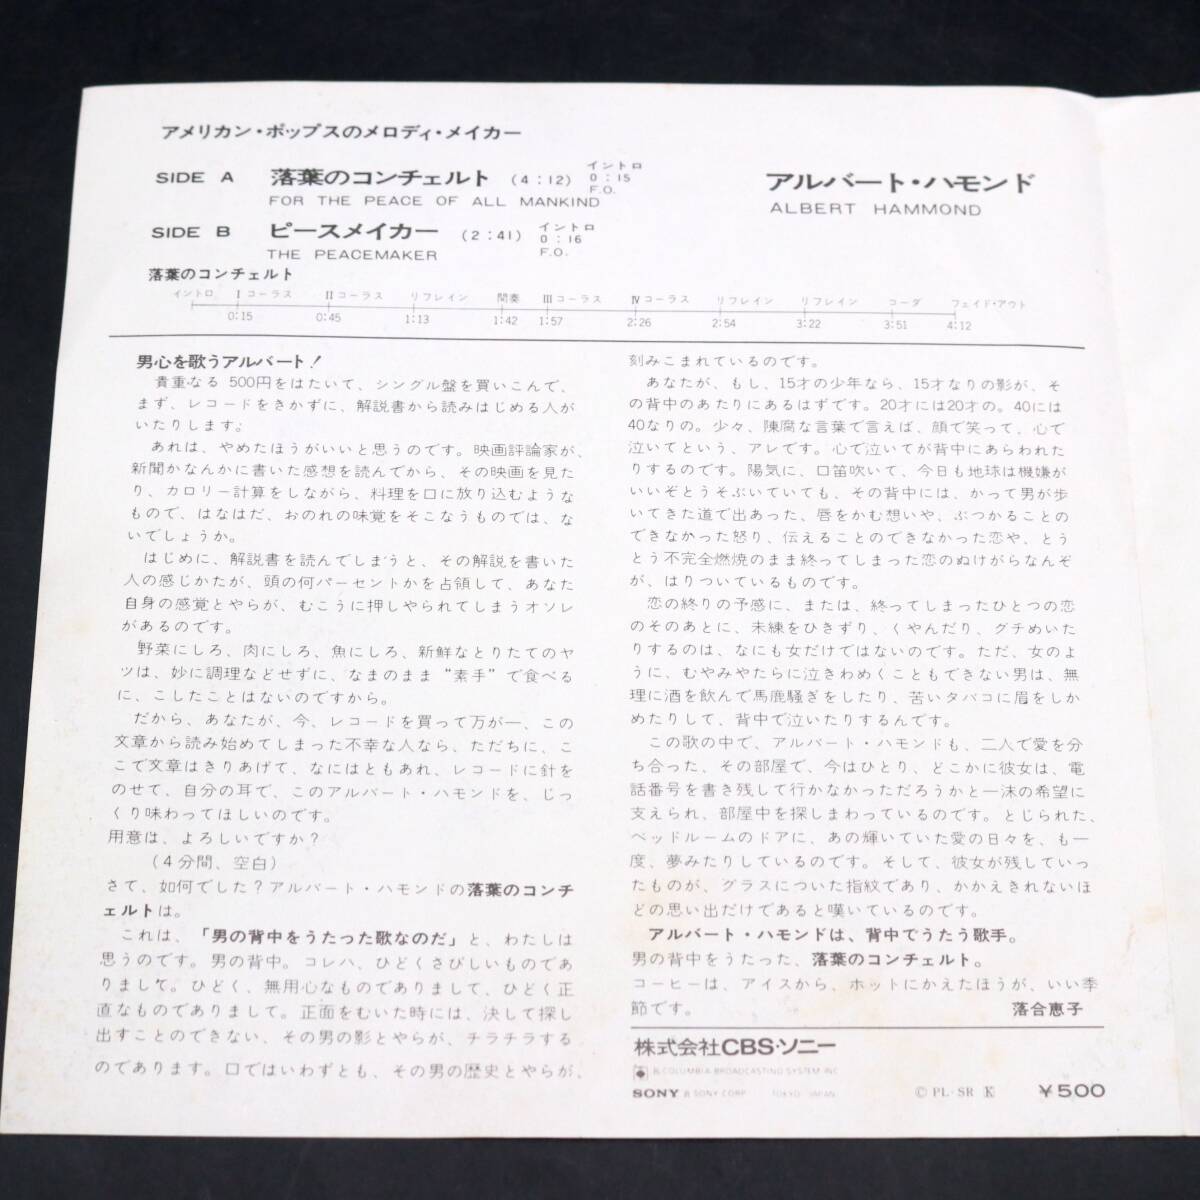 アメリカン・ポップスのメロディ・メイカー
SIDE A 落葉のコンチェルト (4:12) イントロ 0:15 F.O.
FOR THE PEACE OF ALL MANKIND
SIDE B ピースメイカー (2:41) イントロ 0:16 F.O.
THE PEACEMAKER
アルバート・ハモンド
ALBERT HAMMOND
落葉のコンチェルト
イントロ Ⅰコーラス Ⅱコーラス リフレイン 間奏 Ⅲコーラス Ⅳコーラス リフレイン リフレイン コーダ フェイド・アウト
0:15 0:45 1:13 1:42 1:57 2:26 2:54 3:22 3:51 4:12
男心を歌うアルバート!
貴重なる 500円をはたいて、シングル盤を買いこんで、
まず、レコードをきかずに、解説書から読みはじめる人が
いたりします。
あれは、やめたほうがいいと思うのです。映画評論家が、
新聞かなんかに書いた感想を読んでから、その映画を見た
り、カロリー計算をしながら、料理を口に放り込むような
もので、はなはだ、おのれの味覚をそこなうものでは、な
いでしょうか。
はじめに、解説書を読んでしまうと、その解説を書いた
人の感じかたが、頭の何パーセントかを占領して、あなた
自身の感覚とやらが、むこうに押しやられてしまうオソレ
があるのです。
野菜にしろ、肉にしろ、魚にしろ、新鮮なとりたてのヤ
ツは、妙に調理などせずに、なまのまま“素手”で食べる
に、こしたことはないのですから。
だから、あなたが、今、レコードを買って万が一、この
文章から読み始めてしまった不幸な人なら、ただちに、こ
こで文章はきりあげて、なにはともあれ、レコードに針を
のせて、自分の耳で、このアルバート・ハモンドを、じっ
くり味わってほしいのです。
用意は、よろしいですか?
(4分間、空白)
さて、如何でした?アルバート・ハモンドの落葉のコンチ
ェルトは。
これは、「男の背中をうたった歌なのだ」と、わたしは
思うのです。男の背中。コレハ、ひどくさびしいものであ
りまして。ひどく、無用心なものでありまして、ひどく正
直なものでありまして。正面をむいた時には、決して探し
出すことのできない、その男の影とやらが、チラチラする
のであります。口ではいわずとも、その男の歴史とやらが、
刻みこまれているのです。
あなたが、もし、15才の少年なら、15才なりの影が、そ
の背中のあたりにあるはずです。20才には20才の。40には
40なりの。少々、陳腐な言葉で言えば、顔で笑って、心で
泣いてという、アレです。心で泣いてが背中にあらわれた
りするのです。陽気に、口笛吹いて、今日も地球は機嫌が
いいぞとうそぶいていても、その背中には、かって男が歩
いてきた道で出あった、唇をかむ想いや、ぶつかることの
できなかった怒り、伝えることのできなかった恋や、とう
とう不完全燃焼のまま終ってしまった恋のぬけがらなんぞ
が、はりついているものです。
恋の終りの予感に、または、終ってしまったひとつの恋
のそのあとに、未練をひきずり、くやんだり、グチめいた
りするのは、なにも女だけではないのです。ただ、女のよ
うに、むやみやたらに泣きわめくこともできない男は、無
理に酒を飲んで馬鹿騒ぎをしたり、苦いタバコに眉をしか
めたりして、背中で泣いたりするんです。
この歌の中で、アルバート・ハモンドも、二人で愛を分
ち合った、その部屋で、今はひとり、どこかに彼女は、電
話番号を書き残して行かなかっただろうかと一沫の希望に
支えられ、部屋中を探しまわっているのです。とじられた、
ベッドルームのドアに、あの輝いていた愛の日々を、も一
度、夢みたりしているのです。そして、彼女が残していっ
たものが、グラスについた指紋であり、かかえきれないほ
どの思い出だけであると嘆いているのです。
アルバート・ハモンドは、背中でうたう歌手。
男の背中をうたった、落葉のコンチェルト。
コーヒーは、アイスから、ホットにかえたほうが、いい季
節です。 落合恵子
株式会社CBS・ソニー
® COLUMBIA BROADCASTING SYSTEM INC
SONY ® SONY CORP. TOKYO JAPAN
Ⓒ PL・SR K ￥500